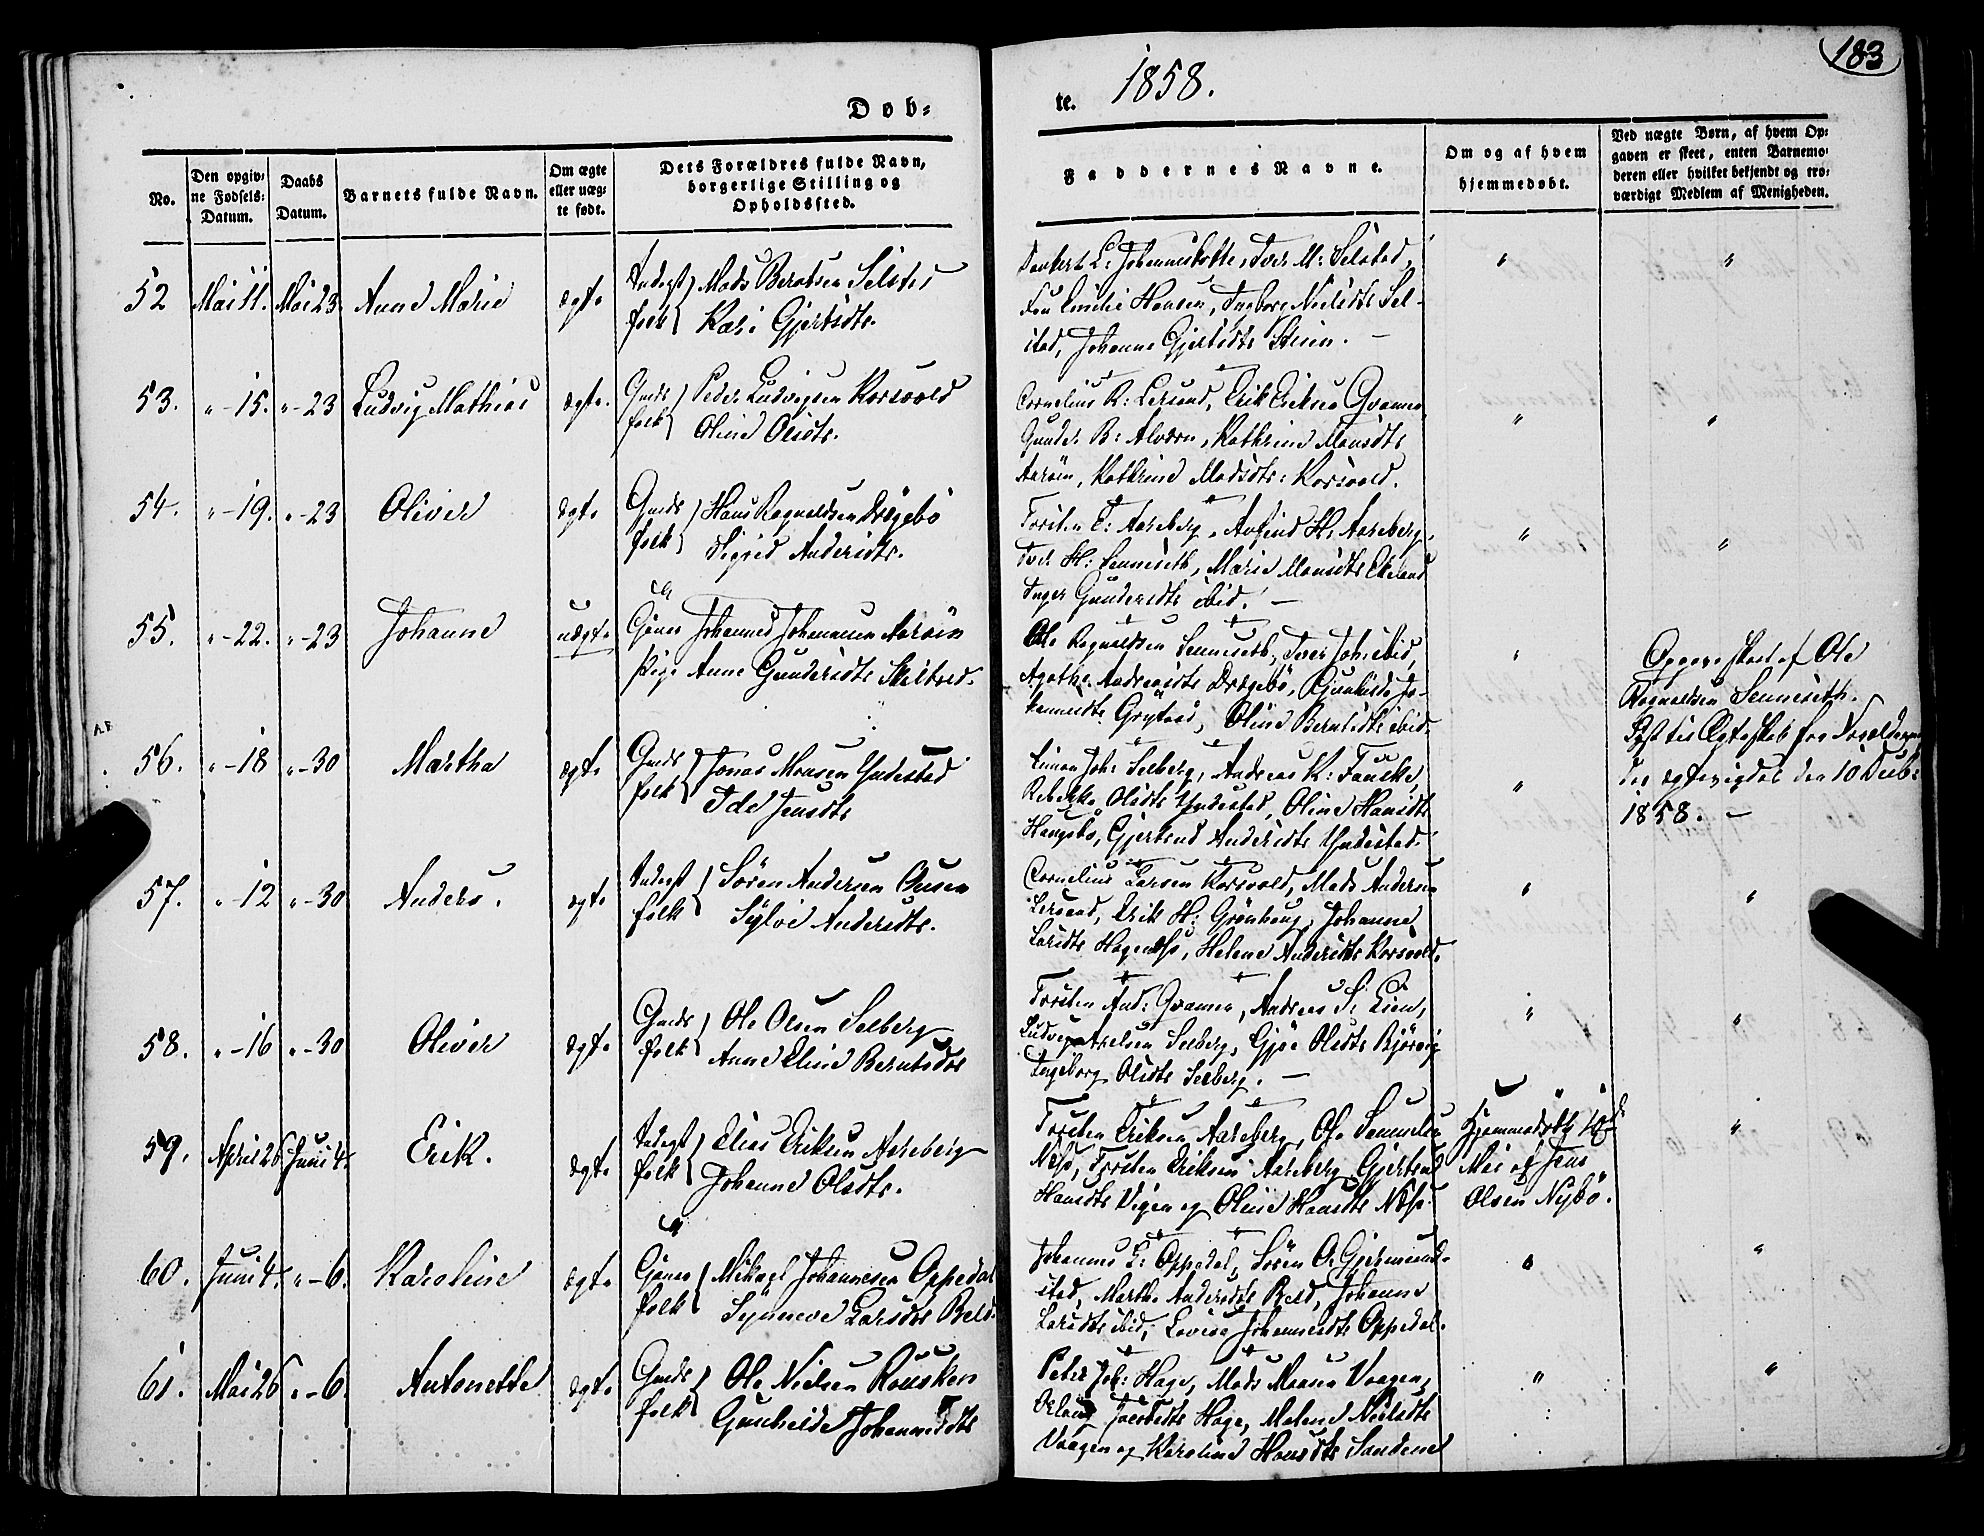 183
Døb=
te. 1858.
No.
Den opgiv=
ne Fødsels=
Datum.
Daabs
Datum.
Barnets fulde Navn.
Om ægte
eller uæg=
te født.
Dets Forældres fulde Navn,
borgerlige Stilling og
Opholdssted.
Faddernes Navne.
Om og af hvem
hjemmedøbt.
Ved uægte Børn, af hvem Op=
gaven er skeet, enten Barnemo=
deren eller hvilket bekjendt og tro=
værdigt Medlem af Menigheden.
52 Mai 11. Mai 23 Anne Marie ægte
folk Mads Berntsen Selstad
Kari Gjertsdtr.
Johanne Gjertsdtr
53. " -15. " -23 Ludvig Mathias ægte. Gmds
folk Peder Ludvigsen Korsvold
Oline Olsdtr.
Cornelius R: Lersund, Erik Eriksen Qvamen
Kathrine Monsdtr
Kathrine Madsdtr: Korsvold.
54. " -19. " -23 Oliver ægte Gmds
folk Hans Ragnvaldsen Drægebø
Sigrid Andersdtr.
Torsten E: Aareberg, H: Aareberg,
Iver H: Senneseth, Marie Monsdtr
Inger Gundersdtr ibid. —
55. " -22. " -23 Johanne uægte
Johannes Johannesen
Pige Anne Gundersdtr
Ole Ragnvaldsen Senneseth, Iver Joh: ibid,
Agathe Andreasdtr Drægebø, Jo-
hannesdtr Grytøen, Oline Berntsdtr ibid.
Opgave skeet af Ole
Ragnvaldsen Senneseth.
Lyst til Ægteskab fra Forældrene
ægteviedes den 10 Decbr
1858. —
56. " -18 " -30 Martha ægte Gmds
folk Jonas Monsen Yndestad
Ide Jensdtr
Simon Joh: Selberg, Andreas K: Fauske,
Rebekka Olsdtr Yndestad, Oline Hansdtr
Hougsbø, Gjertrud Andersdtr Yndestad.
57. " -12 " -30 Anders. ægte
folk Søren Andersen Ousen
Sylvie Andersdtr.
Cornelius Larsen Korsvold, Mads Andersen
Lersund, Erik H: Grønhoug, Johanne
Larsdtr, Helene Andersdtr Korsvold.
58. " -16 " -30 Oliver ægte Gmds
folk Ole Olsen Selberg
Anne Eline Berntsdtr
Torsten And: Qvamen, Andreas S: Lien,
Ludvig Axelsen Selberg, Gjøe Olsdtr Bjørvig
Ingeborg Olsdtr Selberg. —
59. April 26 Juni 4. Erik. ægte
folk Elias Eriksen Aareberg
Johanne Olsdtr.
Torsten Eriksen Aareberg, Ole Samuelsen
Næs, Torsten Eriksen Aareberg, Gjertrud
Hansdtr Vigen og Oline Hansdtr Næs.
Hjemmedøbt 10de
Mai af Jens
Olsen Nybø.
60. Juni 4. " -6. Karoline ægte
folk Mikael Johannesen Oppedal
Synneve Larsdtr Reed.
Johannes L: Oppedal, Søren O: Gjermund-
stad, Marthe Andersdtr Reed, Johanne
Larsdtr ibid, Lovise Johannesdtr Oppedal.
61. Mai 26 " -6 Antonette ægte Gmds
folk Ole Nielsen Rousken
Gunhilde Johannesdtr
Peter Joh: Hage, Mads Vaagen,
Jacobsdtr Hage, Malene Nielsdtr
Vaagen og Karoline Hansdtr Sandene